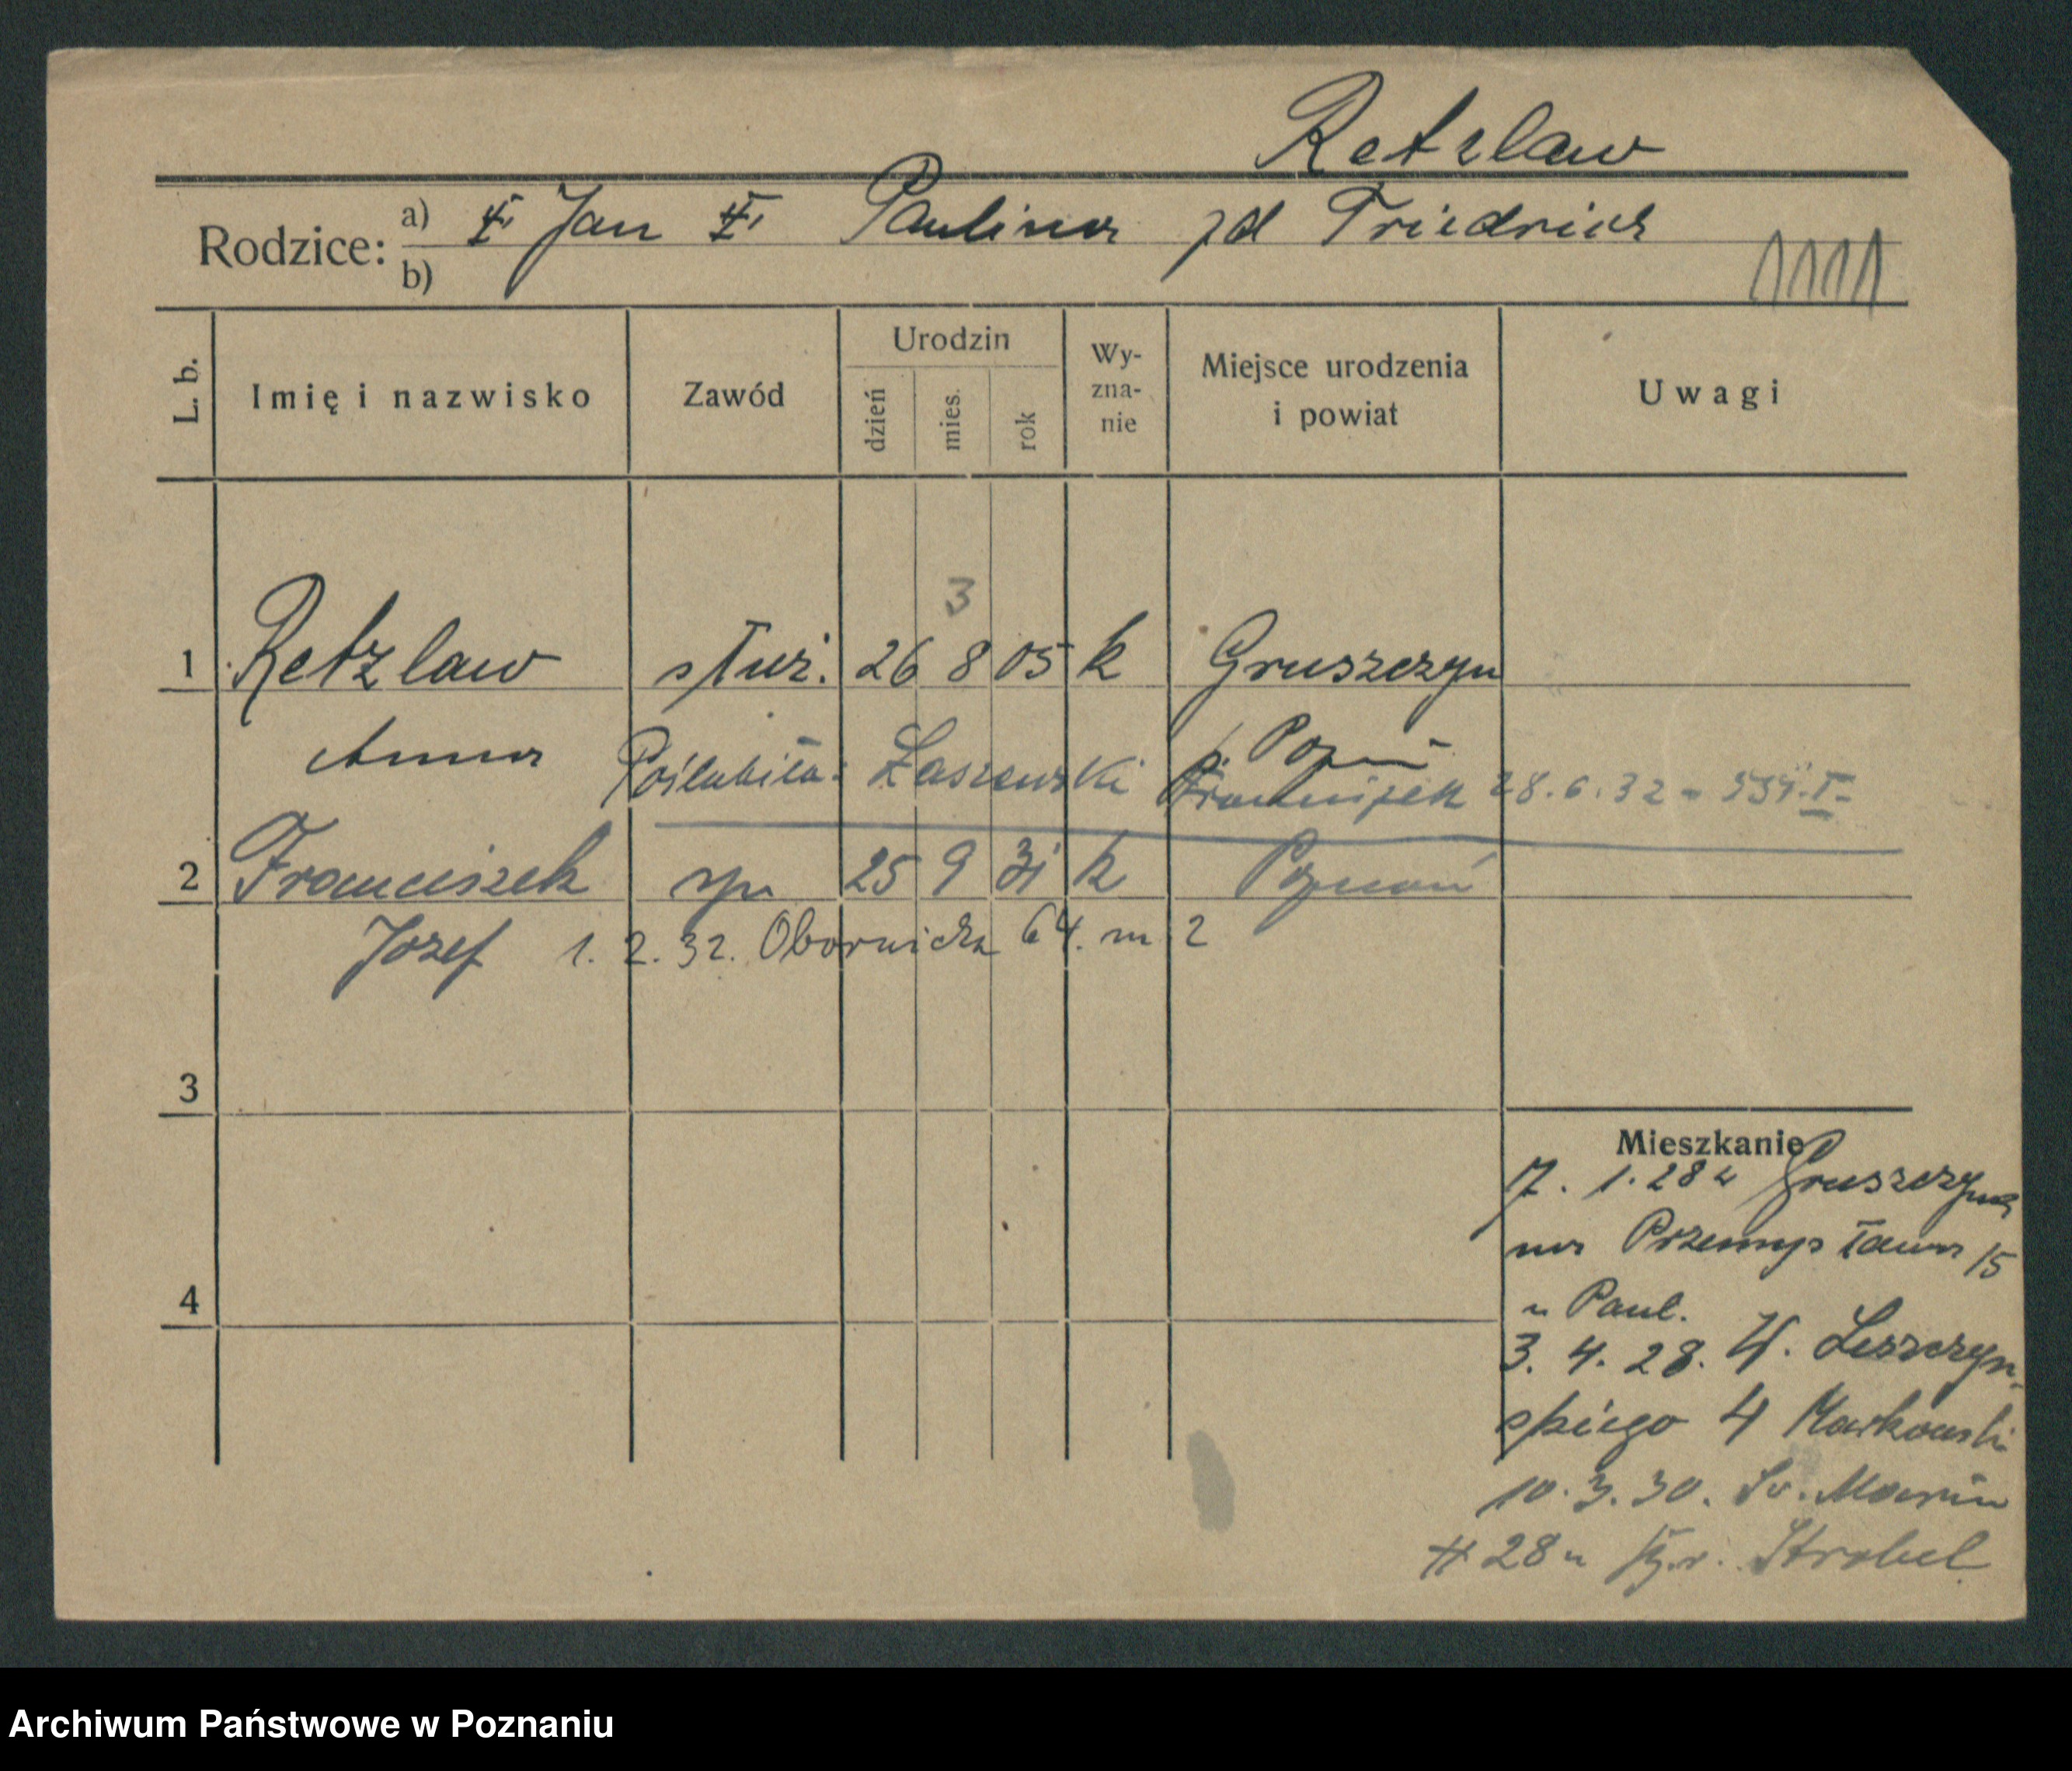 Retzlaw
Rodzice: a) I Jan II Paulina zd Friedrich
b)
L. b. Imię i nazwisko Zawód Urodzin dzień mies. rok Wy-zna-nie Miejsce urodzenia i powiat Uwagi
3
1 Retzlaw służ. 26 8 05 k Gruszczyn
Anna p. Pozn
Poślubiła: Łaszewski Franciszek 28.6.32
2 Franciszek syn 25 9 31 k Poznań
Józef 1. 2. 32. Obornicka 64. m 2
3
Mieszkanie
7. 1. 28 z Gruszczyna
na Przemysława 15
u Paul.
4
3. 4. 28. W. Leszczyń-
skiego 4 Markowski
10. 3. 30. Św. Marcin
28 u Strobel
Archiwum Państwowe w Poznaniu